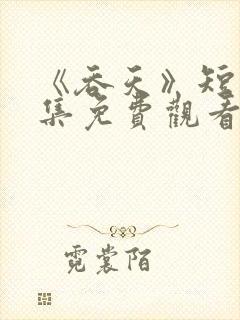 《吞天》短
集免費觀看
霓裳陌